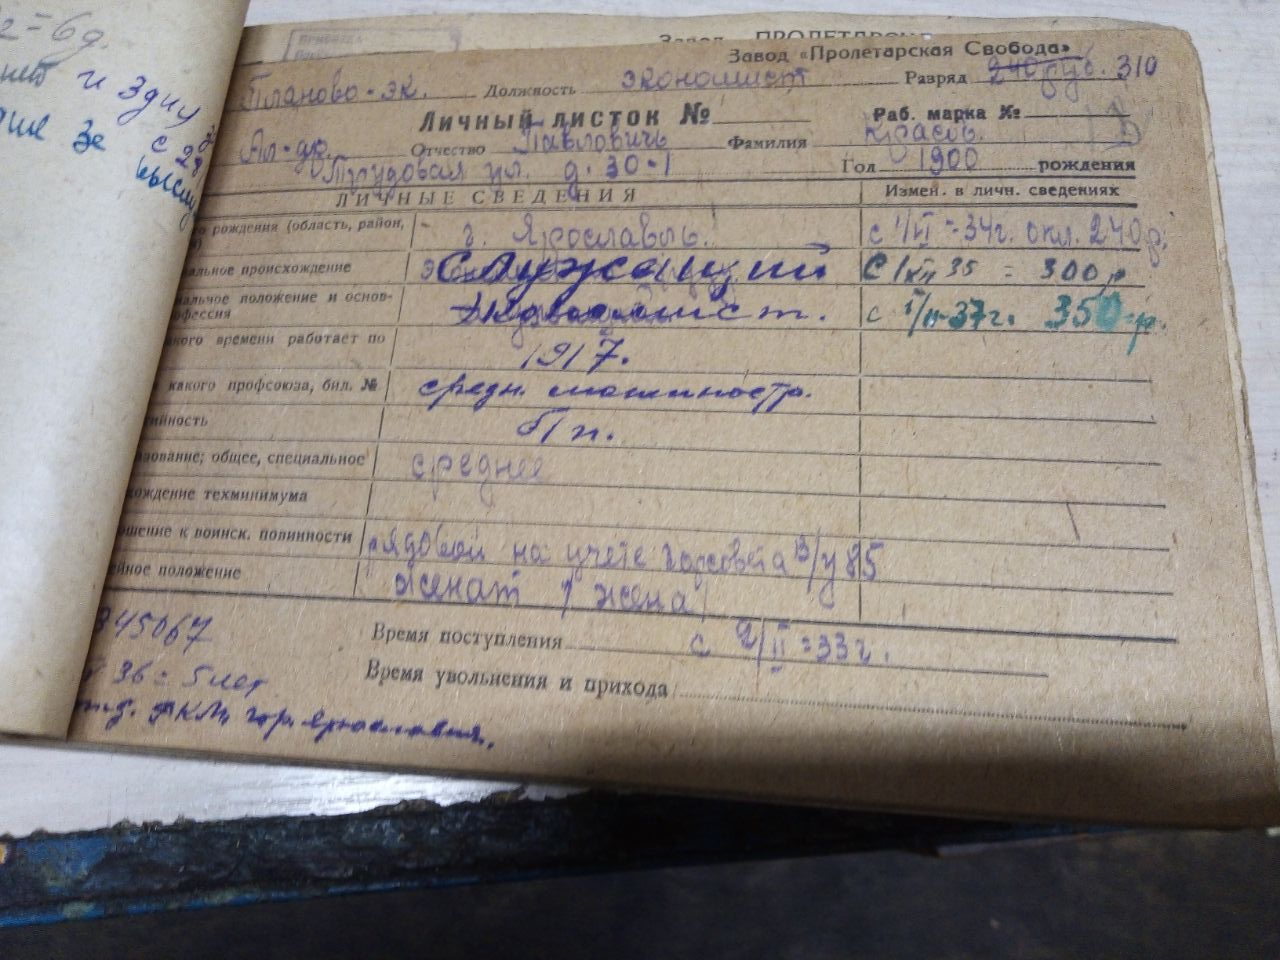 2=6д.
и 3 дня
За
с
Завод ПРОЛЕТАРСК
Завод «Пролетарская Свобода»
Планово-эк. Должность экономист Разряд 240 руб. 310
Личный листок № Раб. марка №
Ал-др. Отчество Павлович Фамилия Красов.
Трудовая ул. д. 30-1 Год 1900 рождения
ЛИЧНЫЕ СВЕДЕНИЯ Измен. в личн. сведениях
рождения (область, район, г. Ярославль. с 1/II-34г. окл. 240р.
альное происхождение служащий с 1/ 35 = 300р
альное положение и основ-
фессия экономист. с 1/II-37г. 350 р.
кого времени работает по 1917.
какого профсоюза, бил. № средн. машиностр.
ийность б/п.
зование; общее, специальное среднее
ождение техминимума
ошение к воинск. повинности рядовой на учете горсовета в/у 85
ейное положение женат 1 жена
345067 Время поступления с 2/II=33г.
36 = 5 лет Время увольнения и прихода
отд. РКМ гор. Ярославля.